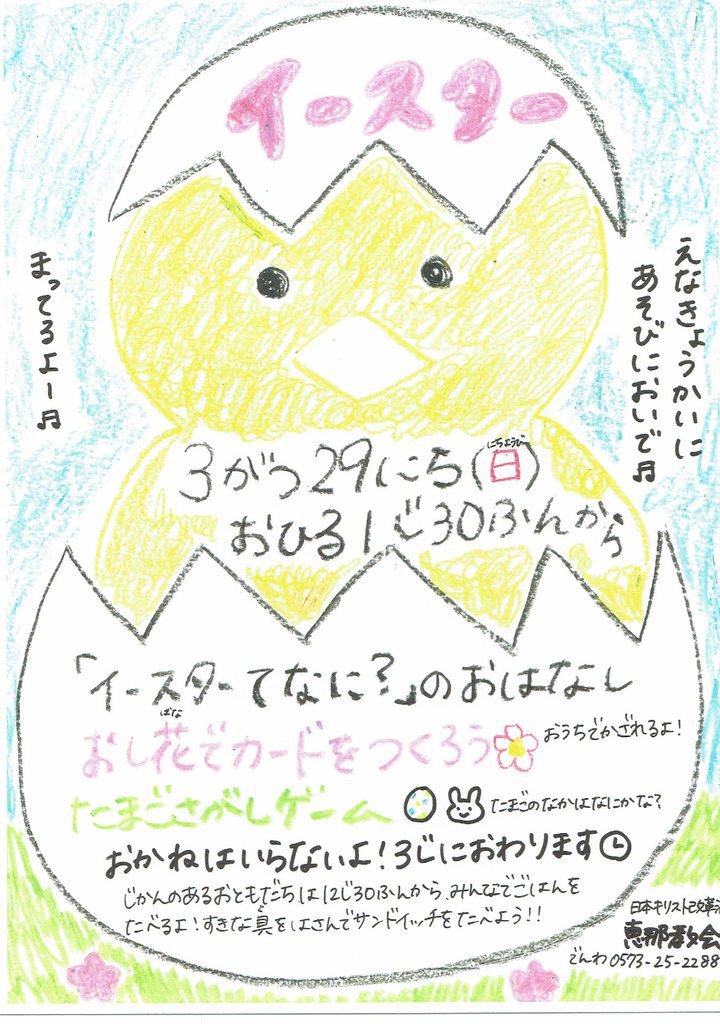 イースター
えなきょうかいに
あそびにおいで♬
まってるよー♬
3がつ29にち(日)
にちようび
おひる1じ30ぷんから
「イースターてなに?」のおはなし
おし花でカードをつくろう
ばな
おうちでかざれるよ!
たまごさがしゲーム
たまごのなかはなにかな?
おかねはいらないよ!3じにおわります
じかんのあるおともだちは12じ30ぷんから、みんなでごはんを
たべるよ!すきな具をはさんでサンドイッチをたべよう!!
日本キリスト改革
恵那教会
でんわ0573-25-2288